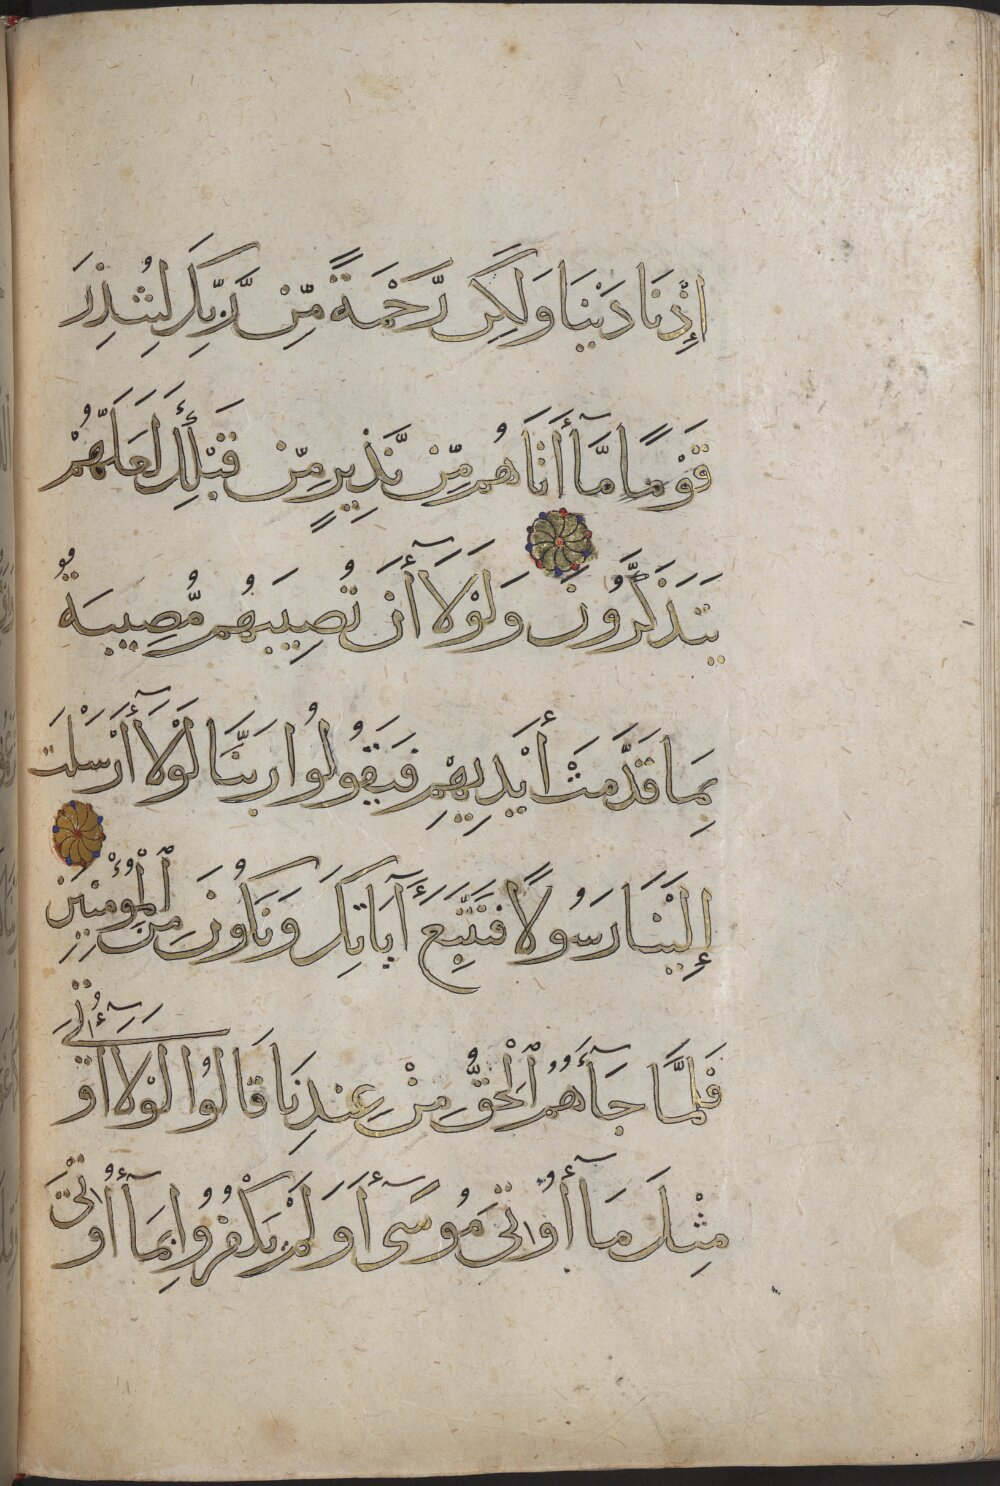 إِذْ نَادَيْنَا وَلَكِن رَّحْمَةً مِّن رَّبِّكَ لِتُنذِرَ
قَوْمًا مَّآ أَتَاهُم مِّن نَّذِيرٍ مِّن قَبْلِكَ لَعَلَّهُمْ
يَتَذَكَّرُونَ وَلَوْلَآ أَن تُصِيبَهُم مُّصِيبَةٌ
بِمَا قَدَّمَتْ أَيْدِيهِمْ فَيَقُولُوا رَبَّنَا لَوْلَآ أَرْسَلْتَ
إِلَيْنَا رَسُولًا فَنَتَّبِعَ آيَاتِكَ وَنَكُونَ مِنَ الْمُؤْمِنِينَ
فَلَمَّا جَآءَهُمُ الْحَقُّ مِنْ عِندِنَا قَالُوا لَوْلَآ أُوتِيَ
مِثْلَ مَآ أُوتِيَ مُوسَىٓ أَوَلَمْ يَكْفُرُوا بِمَآ أُوتِيَ